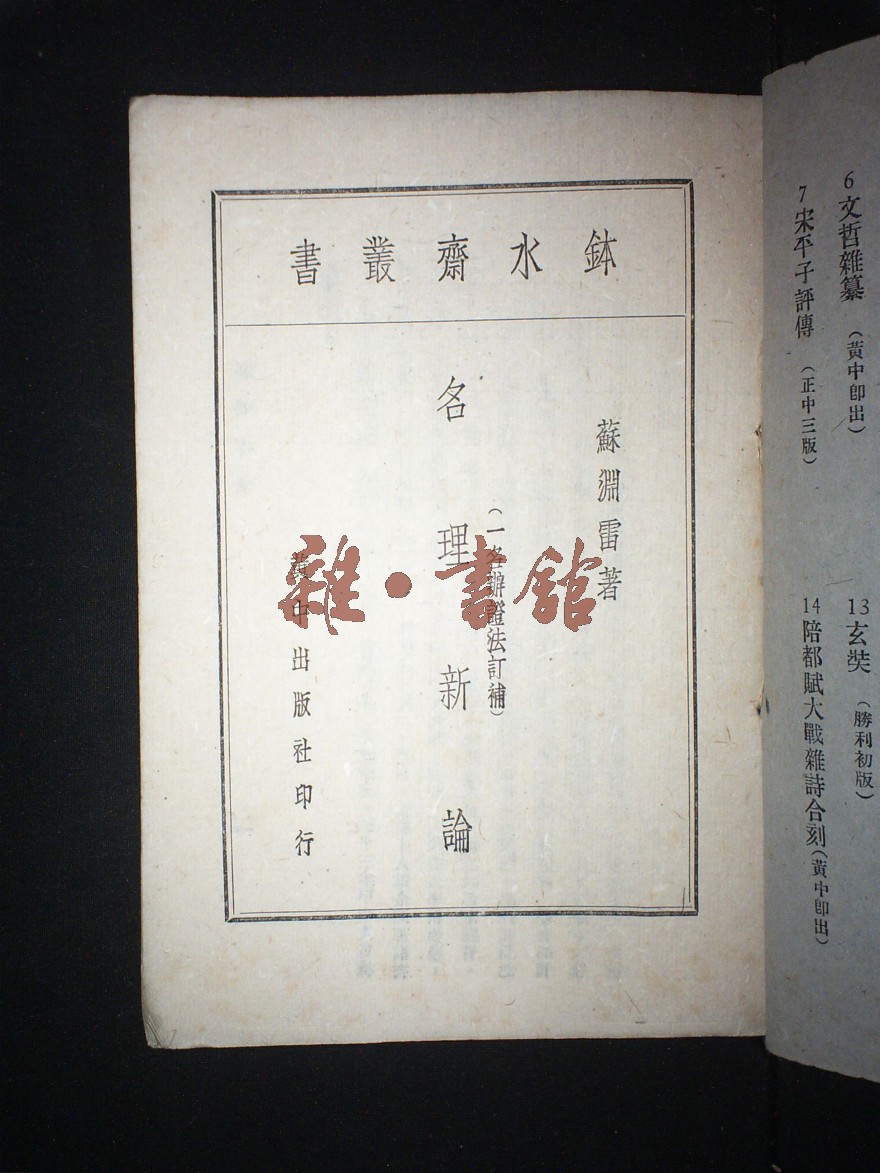 鉢水齋叢書
蘇淵雷著
(一名辯證法訂補)
名理新論
黃中出版社印行
雜·書館
6 文哲雜纂 (黃中即出)
7 宋平子評傳 (正中三版)
13 玄奘 (勝利初版)
14 陪都賦大戰雜詩合刻 (黃中即出)